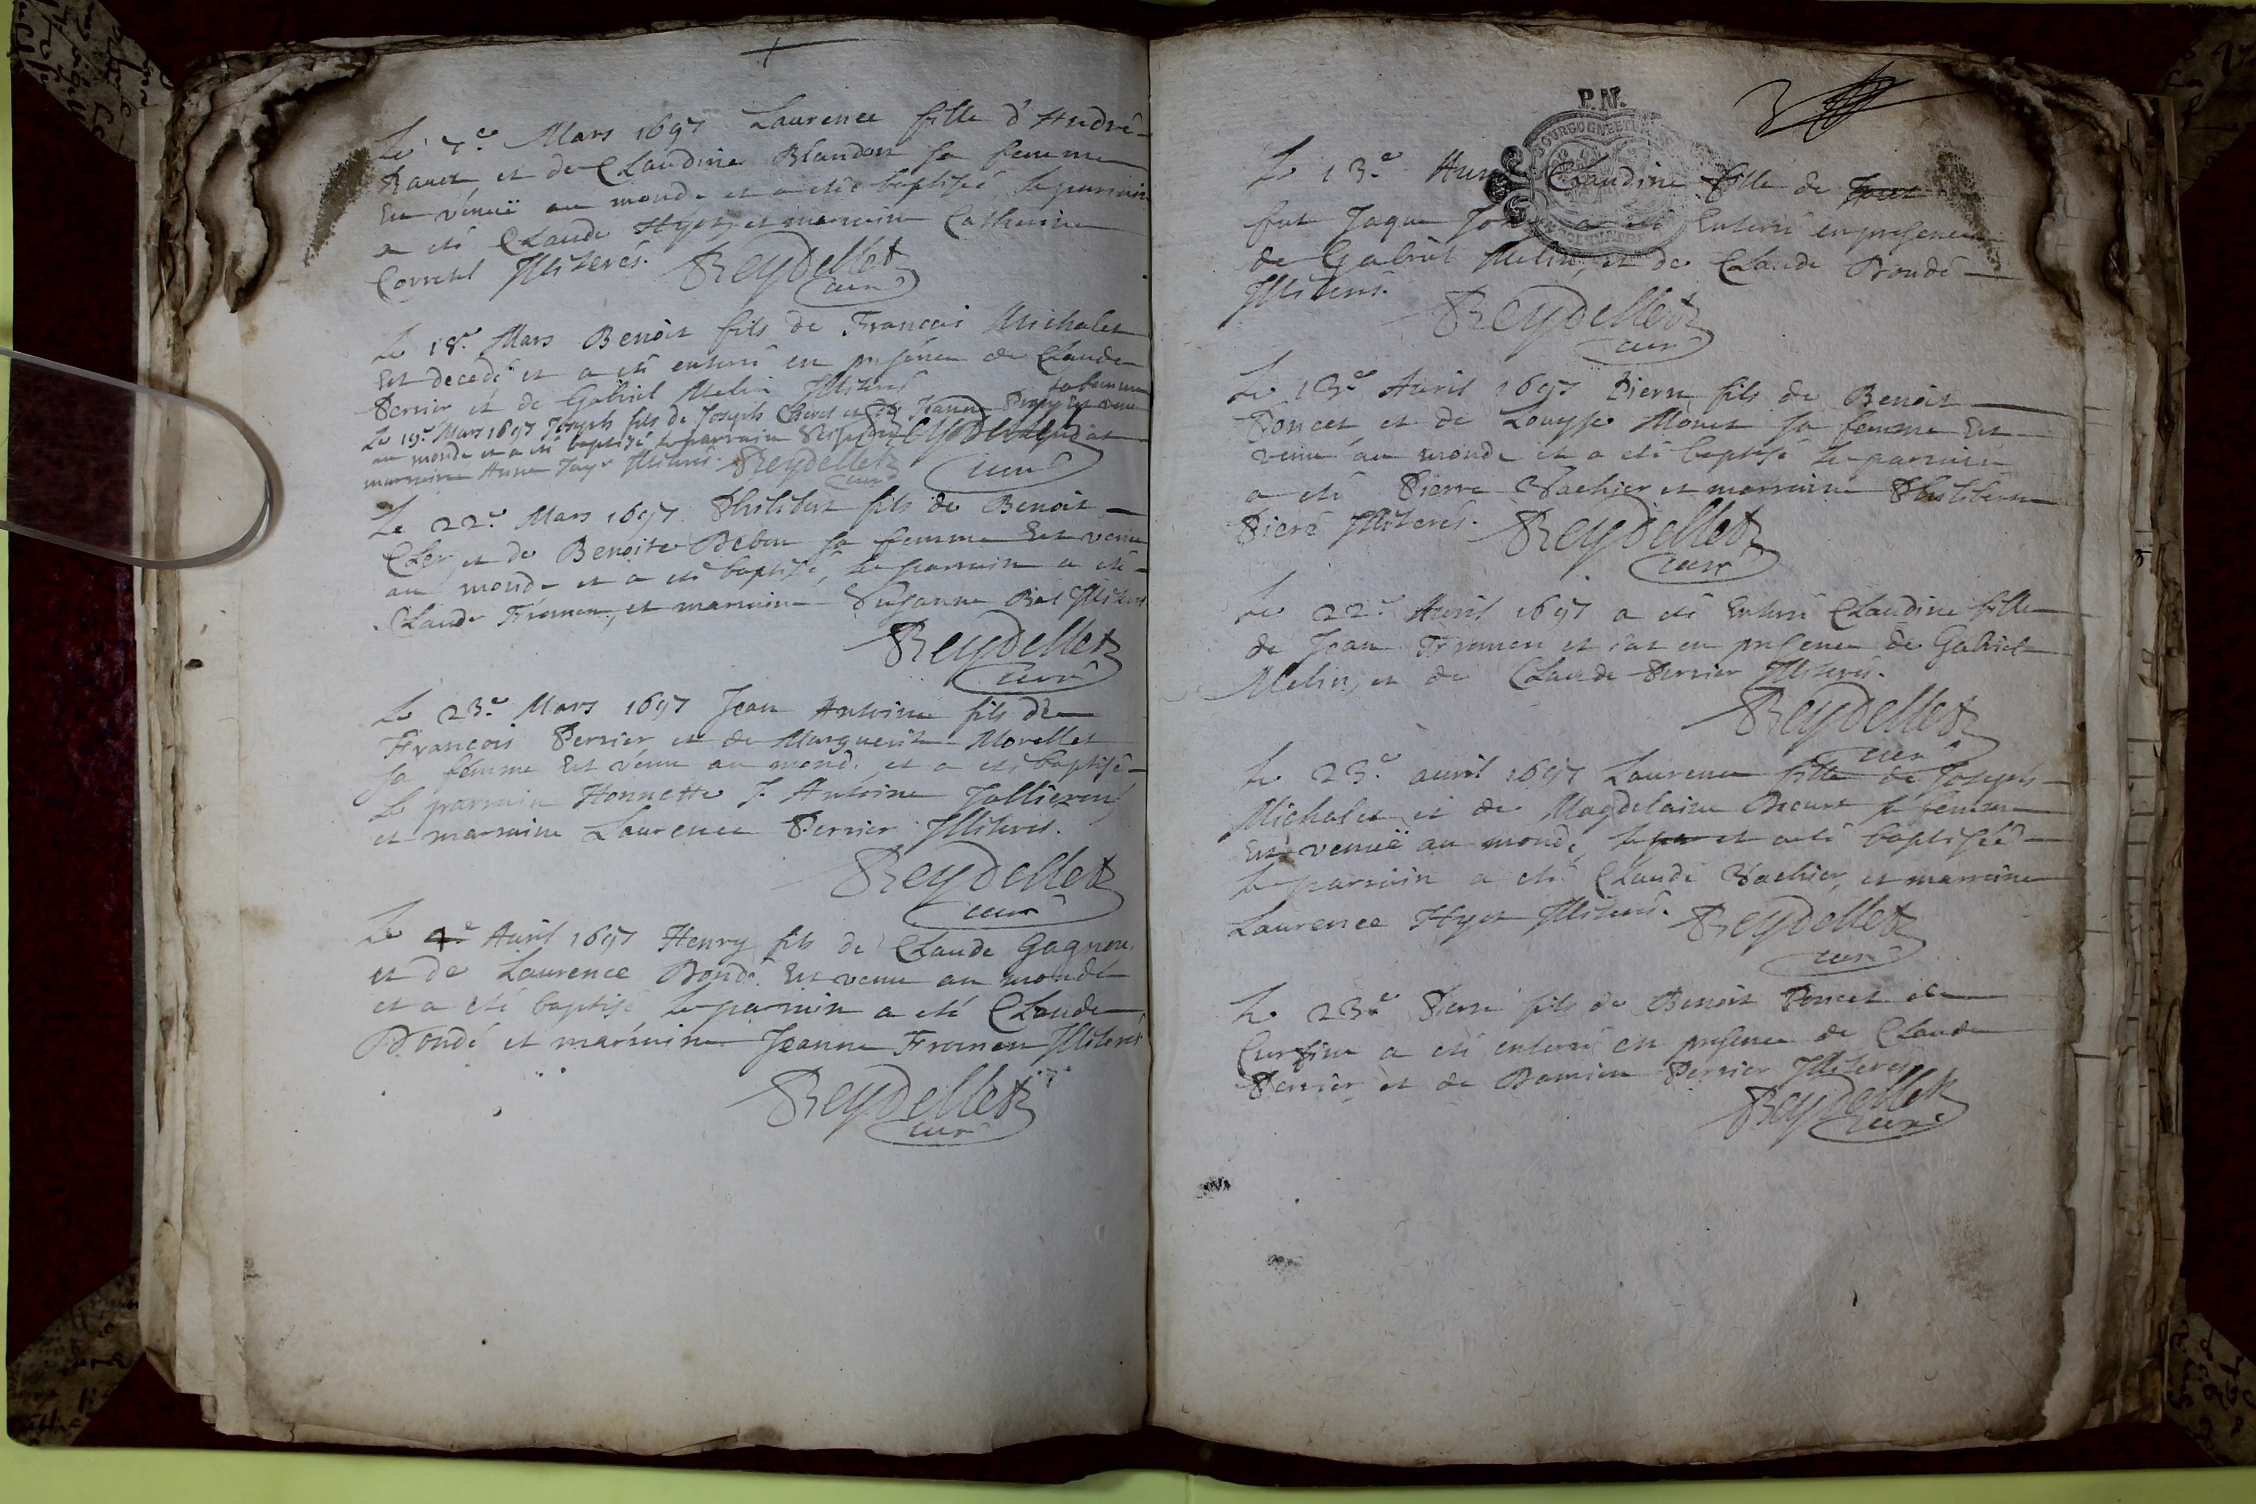 Le 7e Mars 1697 Laurence fille d'André
et de Claudine Blandon sa femme
Est venuë au monde et a eté baptisée, le parrain
a eté Claude Hyot, et marraine Catherine
Illiterés. Reydellet
curé
Le 18e Mars Benoit fils de Francois Michalet
Est decedé et a eté enterré en presence de Claude
Perrier et de Gabriel Melin Illiterés
sa femme
Le 19e Mars 1697 Joseph fils de Joseph et de Jeanne Est venu
au monde et a eté baptisé le parrain
marraine Anne Illiterés. Reydellet
curé
Le 22e Mars 1697 Philibert fils de Benoit
Cler et de Benoite Bebon sa femme Est venu
au monde et a eté baptisé, le parrain a eté
Claude Fromen, et marraine Susanne Illiterés
Reydellet
curé
Le 23e Mars 1697 Jean Antoine fils de
Francois Perrier et de Marguerite Morellet
sa femme Est venu au monde et a eté baptisé
Le parrain Honnette J. Antoine
et marraine Laurence Perrier Illiterés.
Reydellet
curé
Le Avril 1697 Henry fils de Claude Gagneu
et de Laurence Bondé Est venu au monde
et a eté baptisé Le parrain a eté Claude
Bondé et marraine Jeanne Fromen Illiterés
Reydellet
curé
P.N.
Le 13e Claudine fille de
fut Jaque a eté Enterré en presence
de Gabriel Melin, et de Claude Bondé
Illiterés.
Reydellet
curé
Le 13e Avril 1697 Pierre fils de Benoit
Poncet et de Louyse Monet sa femme Est
venu au monde et a eté baptisé le parrain
a eté Pierre Vachier et marraine Philiberte
Illiterés. Reydellet
curé
Le 22e Avril 1697 a eté Enterré Claudine fille
de Jean Fromen et en presence de Gabriel
Melin, et de Claude Perrier Illiterés.
Reydellet
curé
Le 23e avril 1697 Laurence fille de Joseph
Michalet et de Magdelaine sa femme
Est venuë au monde et a eté baptisée
Le parrain a eté Claude Vachier, et marraine
Laurence Hyot Illiterés. Reydellet
curé
Le 23e Pierre fils de Benoit Poncet de
a eté enterré en presence de Claude
Perrier et de Damien Perrier Illiterés
Reydellet
curé